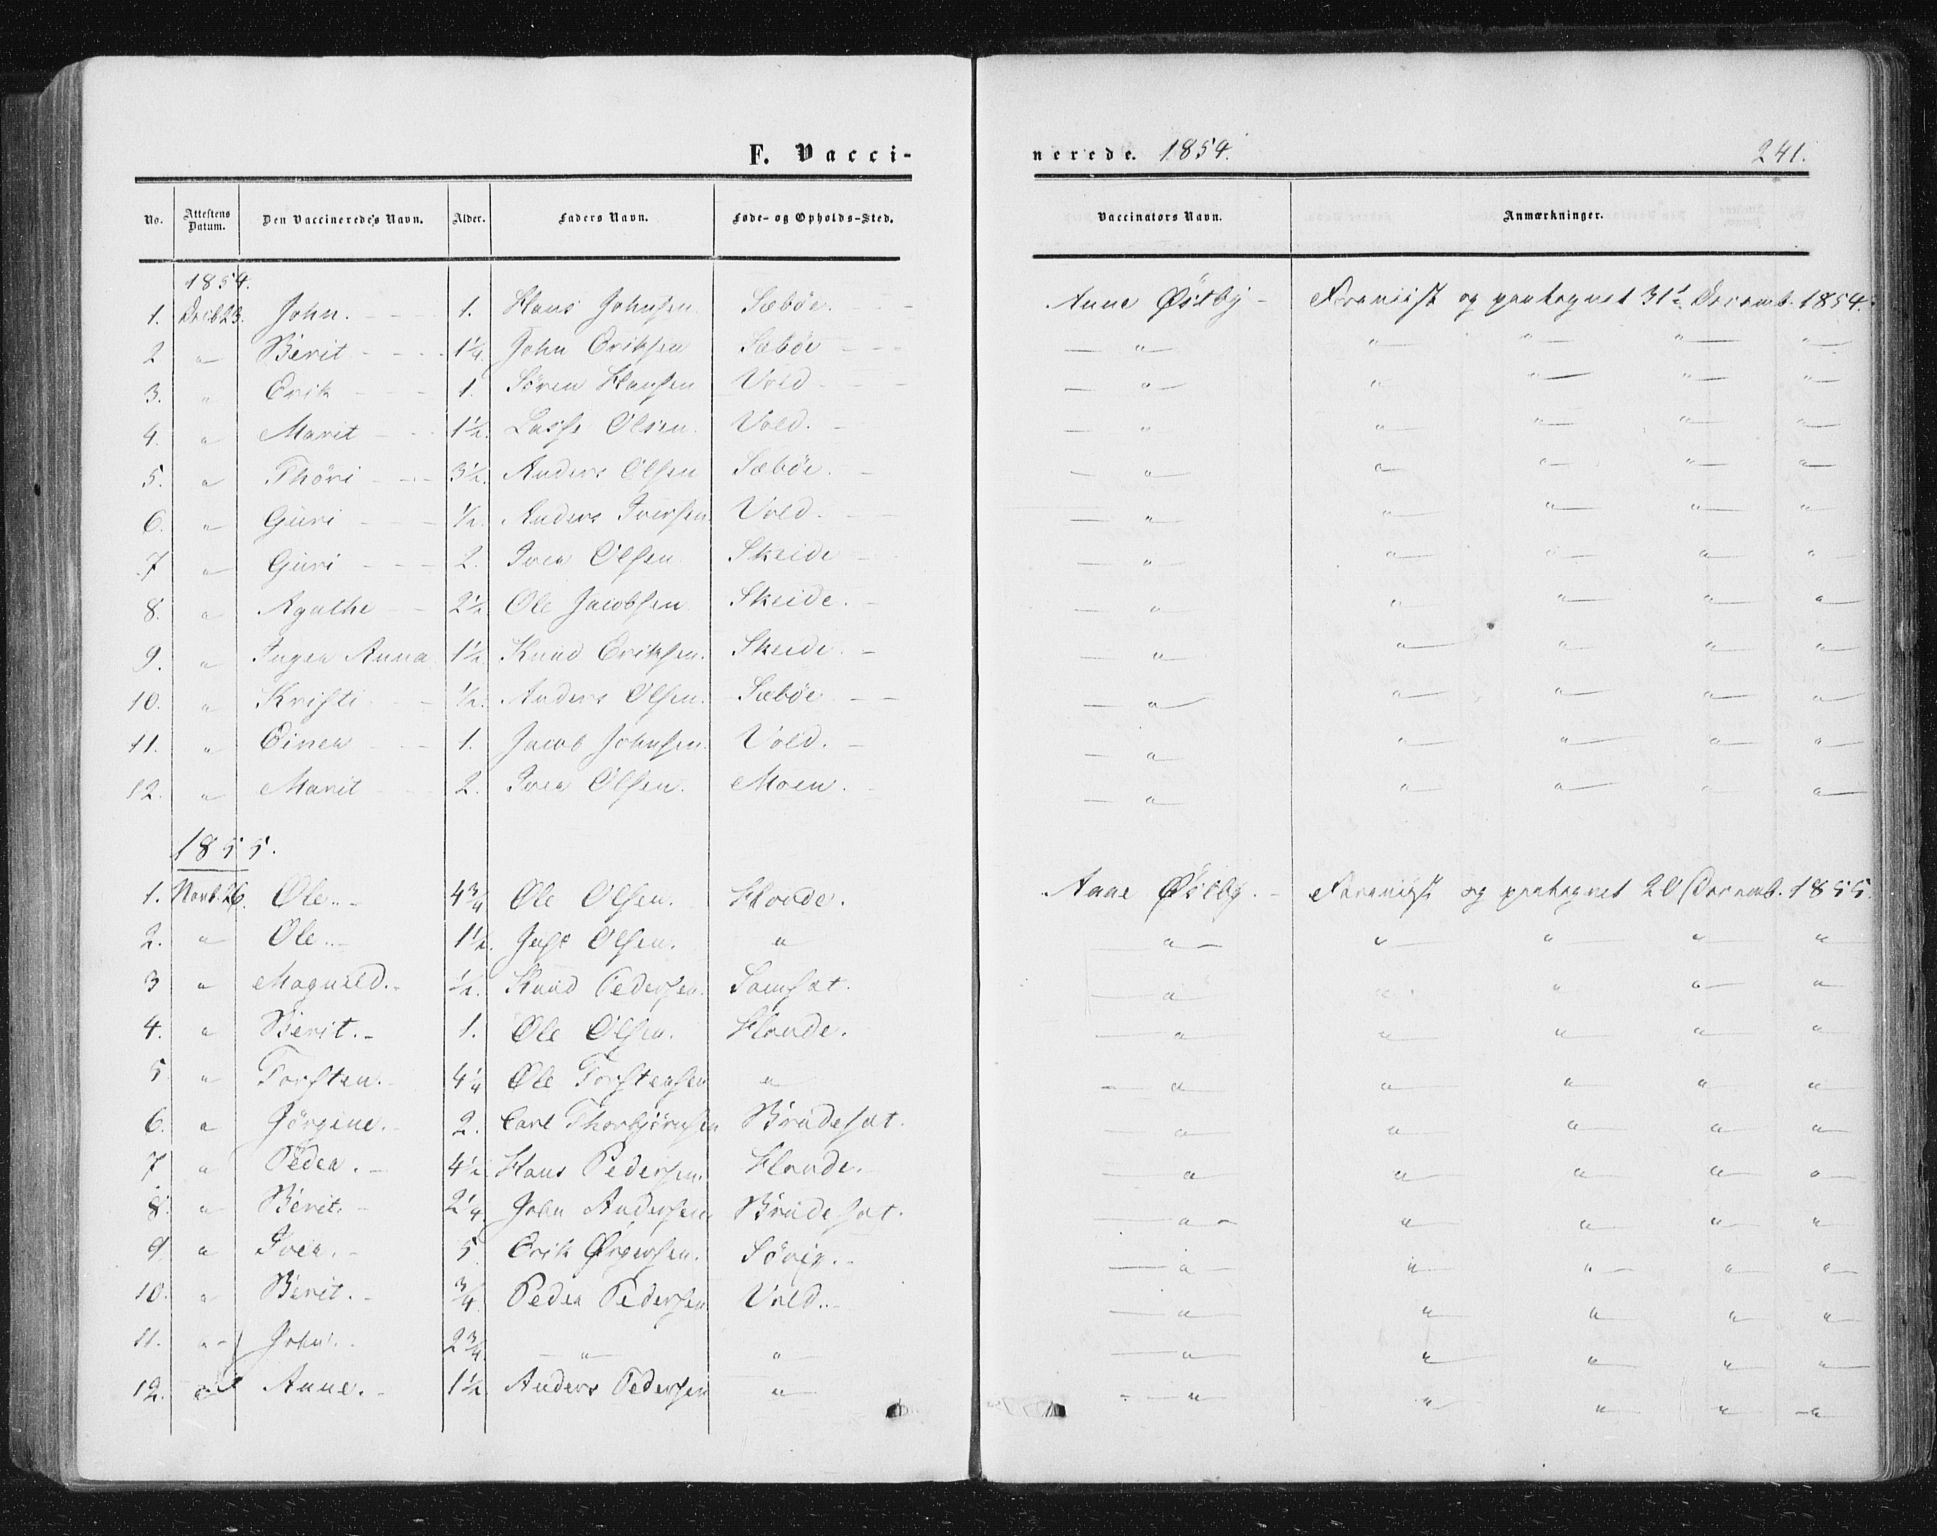 F. Vacci-nerede. 1854. 241.
No. Attestens Datum. Den Vaccineredes Navn. Alder. Faders Navn. Føde- og Opholds-Sted. Vaccinators Navn. Anmærkninger.
1854.
1. Decb 23. John. 1. Hans Johnsen Sæbøe. Anne Østby Foreviist og paategnet 31te Decemb. 1854.
2 " Berit 1¼. John Eriksen Sæbøe " " " " "
3. " Erik 1. Sören Hansen Vold " " " " "
4. " Marit 1½. Lasse Olsen. Vold. " " " " "
5. " Thöri 3½. Anders Olsen Sæbøe. " " " " "
6. " Guri ½. Anders Iversen. Vold. " " " " "
7 " Guri 2. Iver Olsen Skeide " " " " "
8. " Agathe 2½ Ole Jacobsen. Skeide. " " " " "
9. " Inger Anna 1½ Knud Eriksen. Skeide. " " " " "
10. " Kristi ½. Anders Olsen. Sæbøe " " " " "
11. " Einer 1. Jacob Johnsen. Vold. " " " " "
12. " Marit 2. Iver Olsen. Moen. " " " " "
1855.
1. Novb. 26. Ole. 4¾ Ole Olsen. Flovde. Anne Østby. Foreviist og paategnet 20 Decemb. 1855.
2. " Ole. 1½. Just Olsen. " " " " " "
3 " Magnild. ½. Knud Pedersen. " " " " "
4. " Berit. 1. Ole Olsen. Flovde. " " " " "
5 " Torsten. 4¼ Ole Torstensen " " " " " "
6. " Jörgine. 2. Carl Thorbjörnsen " " " " "
7 " Peder. 4½ Hans Pedersen. Flovde. " " " " "
8. " Berit. 2¼. John Andersen. " " " " "
9 " Iver. 5 Erik Sövig. " " " " "
10. " Berit. ¾ Peder Pedersen Vold. " " " " "
11. " John. 2¾. " " " " " " "
12. " Anne. 1½ Anders Pedersen " " " " " "